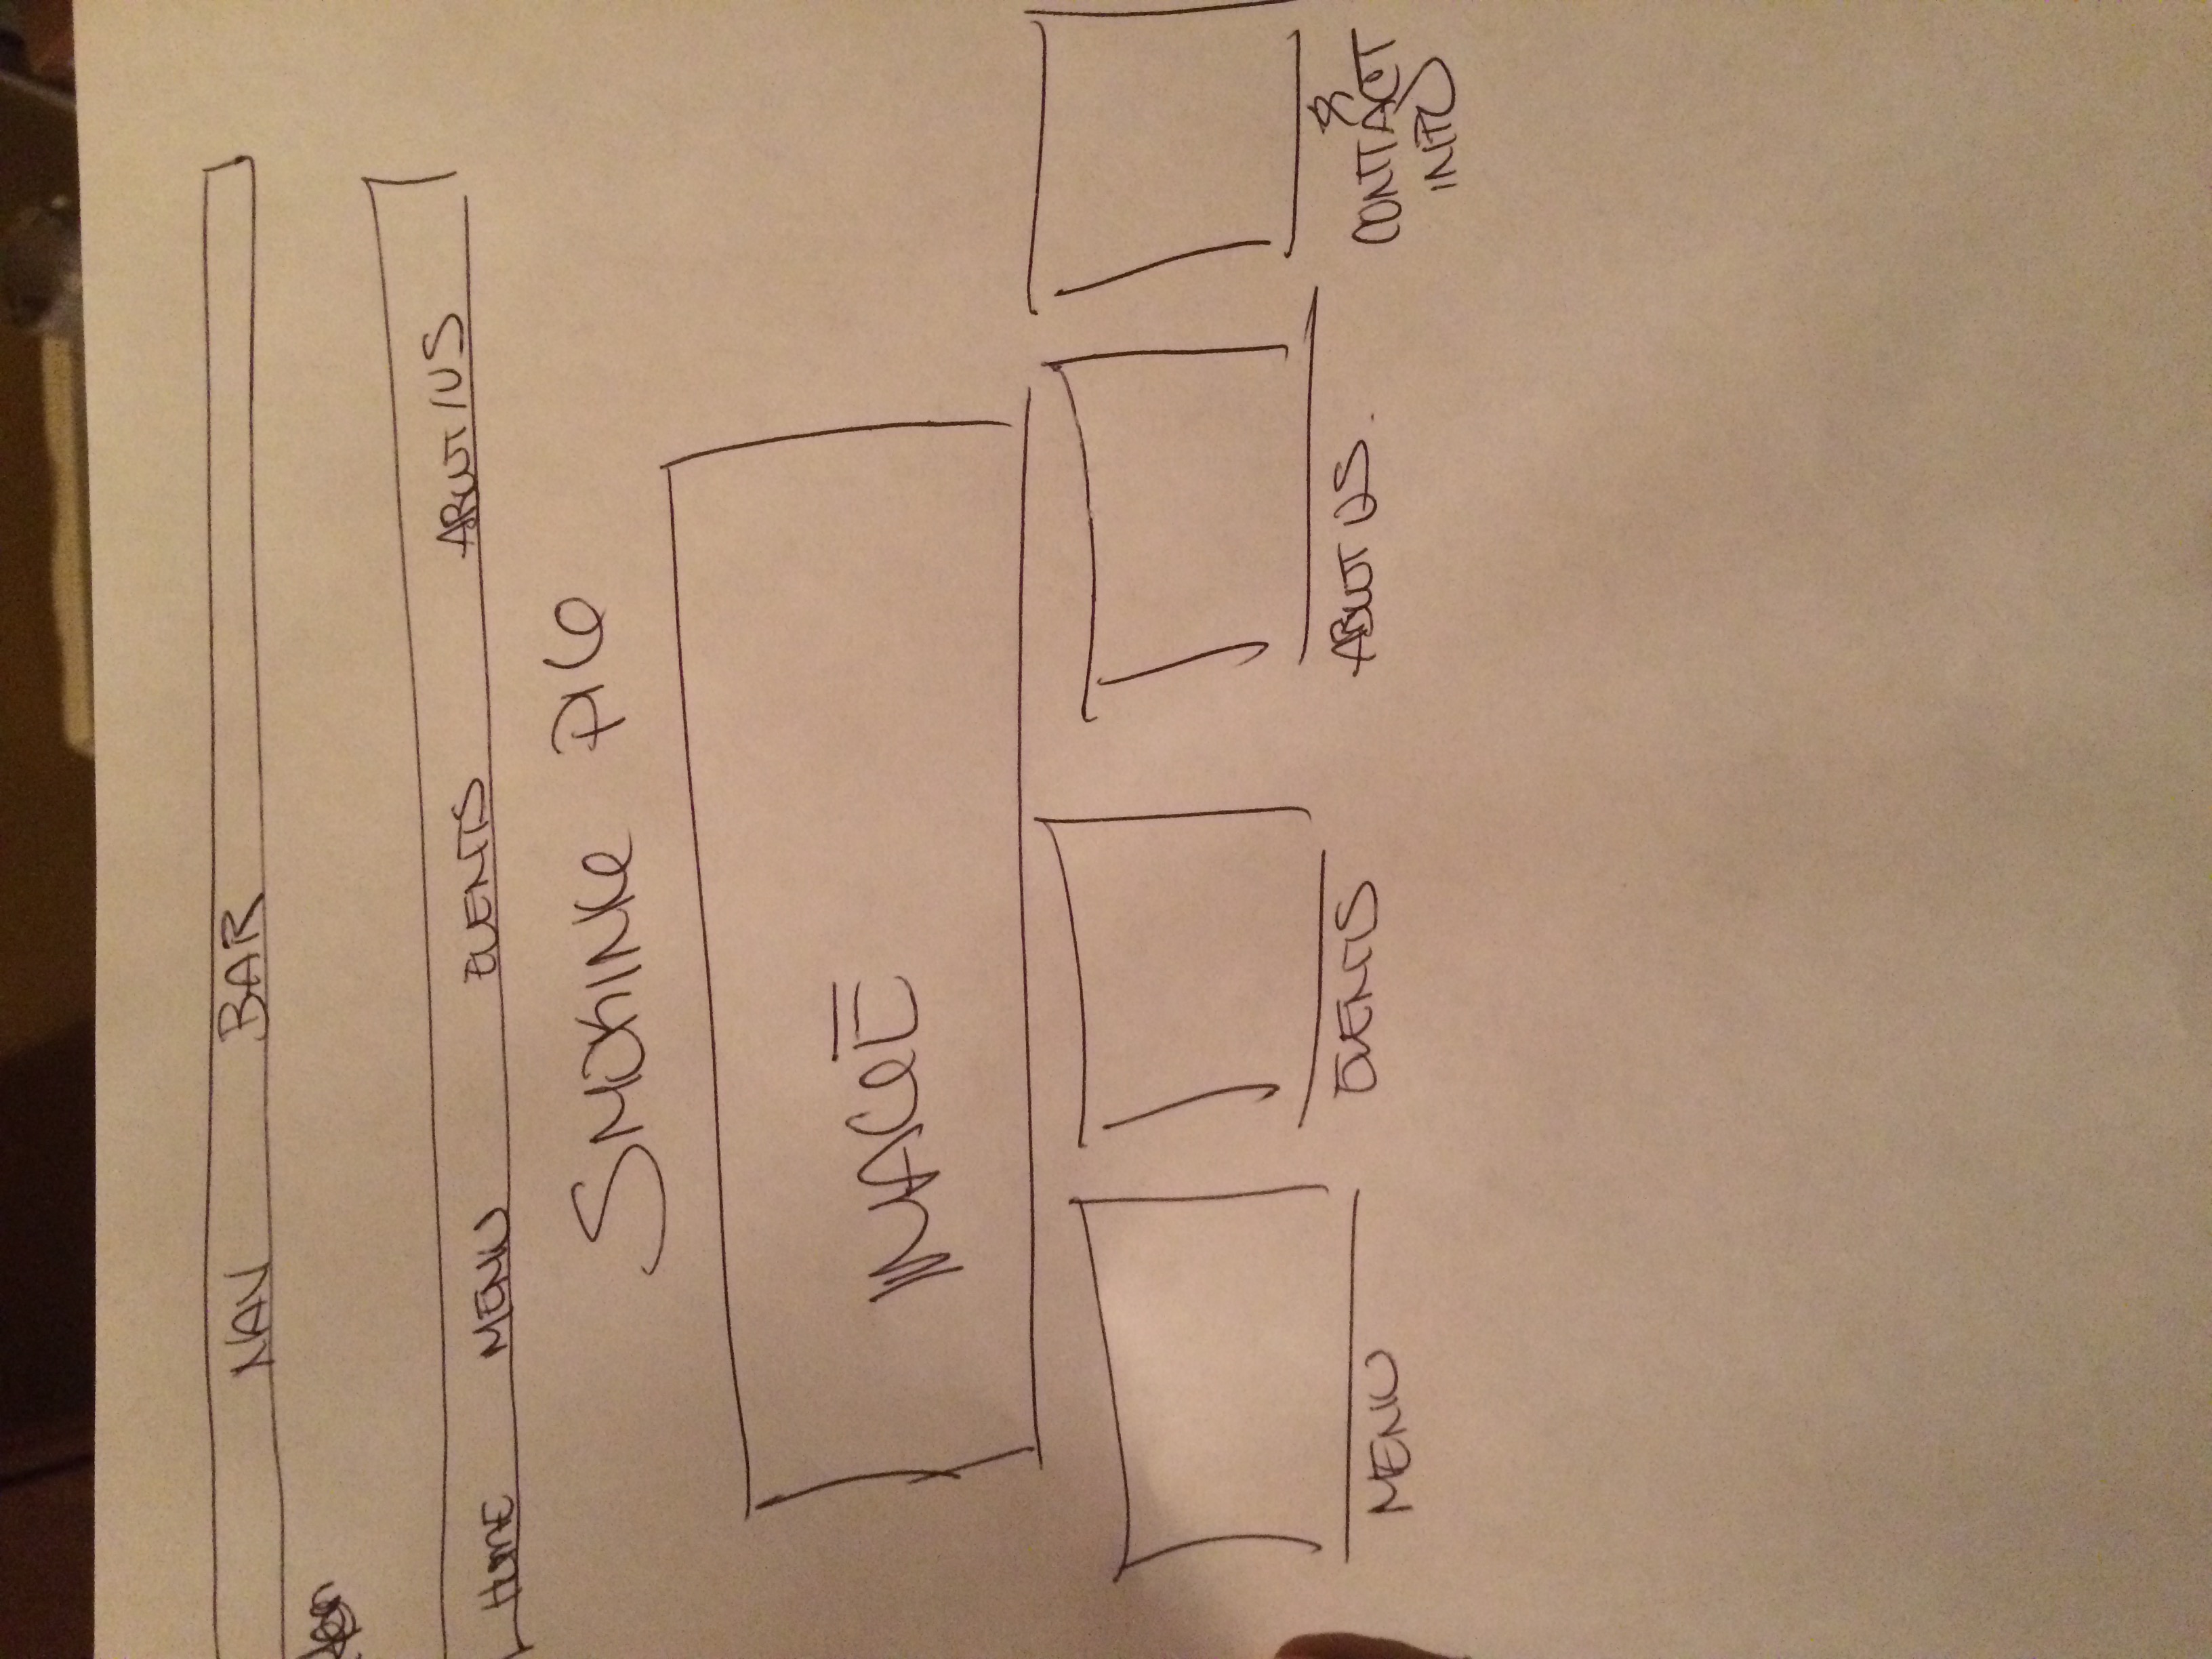 NAV BAR
HOME MENU EVENTS ABOUT/US
SMOKING PIG
IMAGE
MENU EVENTS ABOUT US.
&
CONTACT
INFO